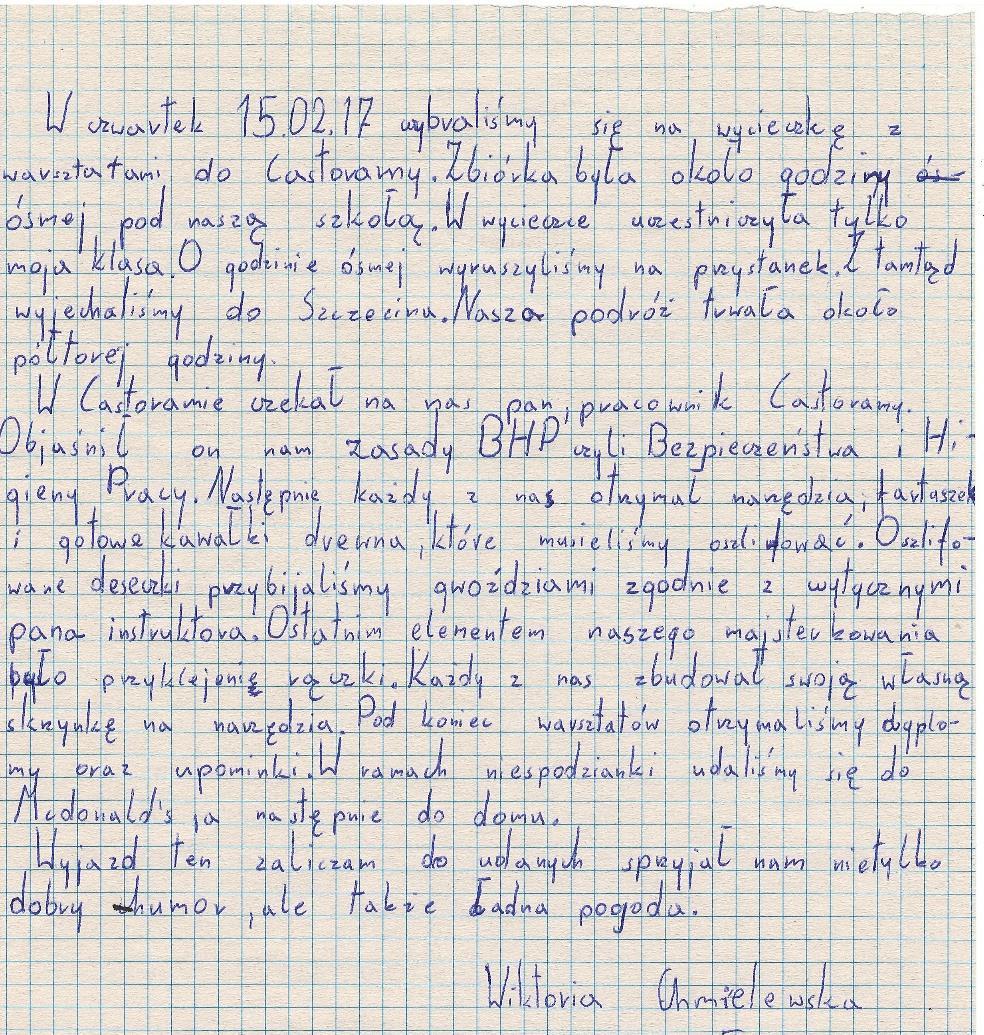 W czwartek 15.02.17 wybraliśmy się na wycieczkę z
warsztatami do Castoramy. Zbiórka była około godziny ós-
ósmej pod naszą szkołą. W wycieczce uczestniczyła tylko
moja klasa. O godzinie ósmej wyruszyliśmy na przystanek. Z tamtąd
wyjechaliśmy do Szczecina. Nasza podróż trwała około
półtorej godziny.
W Castoramie czekał na nas pan, pracownik Castoramy.
Objaśnił on nam zasady BHP czyli Bezpieczeństwa i Hi-
gieny Pracy. Następnie każdy z nas otrzymał narzędzia, fartuszek
i gotowe kawałki drewna, które musieliśmy oszlifować. Oszlifo-
wane deseczki przybijaliśmy gwoździami zgodnie z wytycznymi
pana instruktora. Ostatnim elementem naszego majsterkowania
było przyklejenię rączki. Każdy z nas zbudował swoją własną
skrzynkę na narzędzia. Pod koniec warsztatów otrzymaliśmy dyplo-
my oraz upominki. W ramach niespodzianki udaliśmy się do
Mcdonald's, a następnie do domu.
Wyjazd ten zaliczam do udanych sprzyjał nam nietylko
dobry humor, ale także ładna pogoda.
Wiktoria Chmielewska